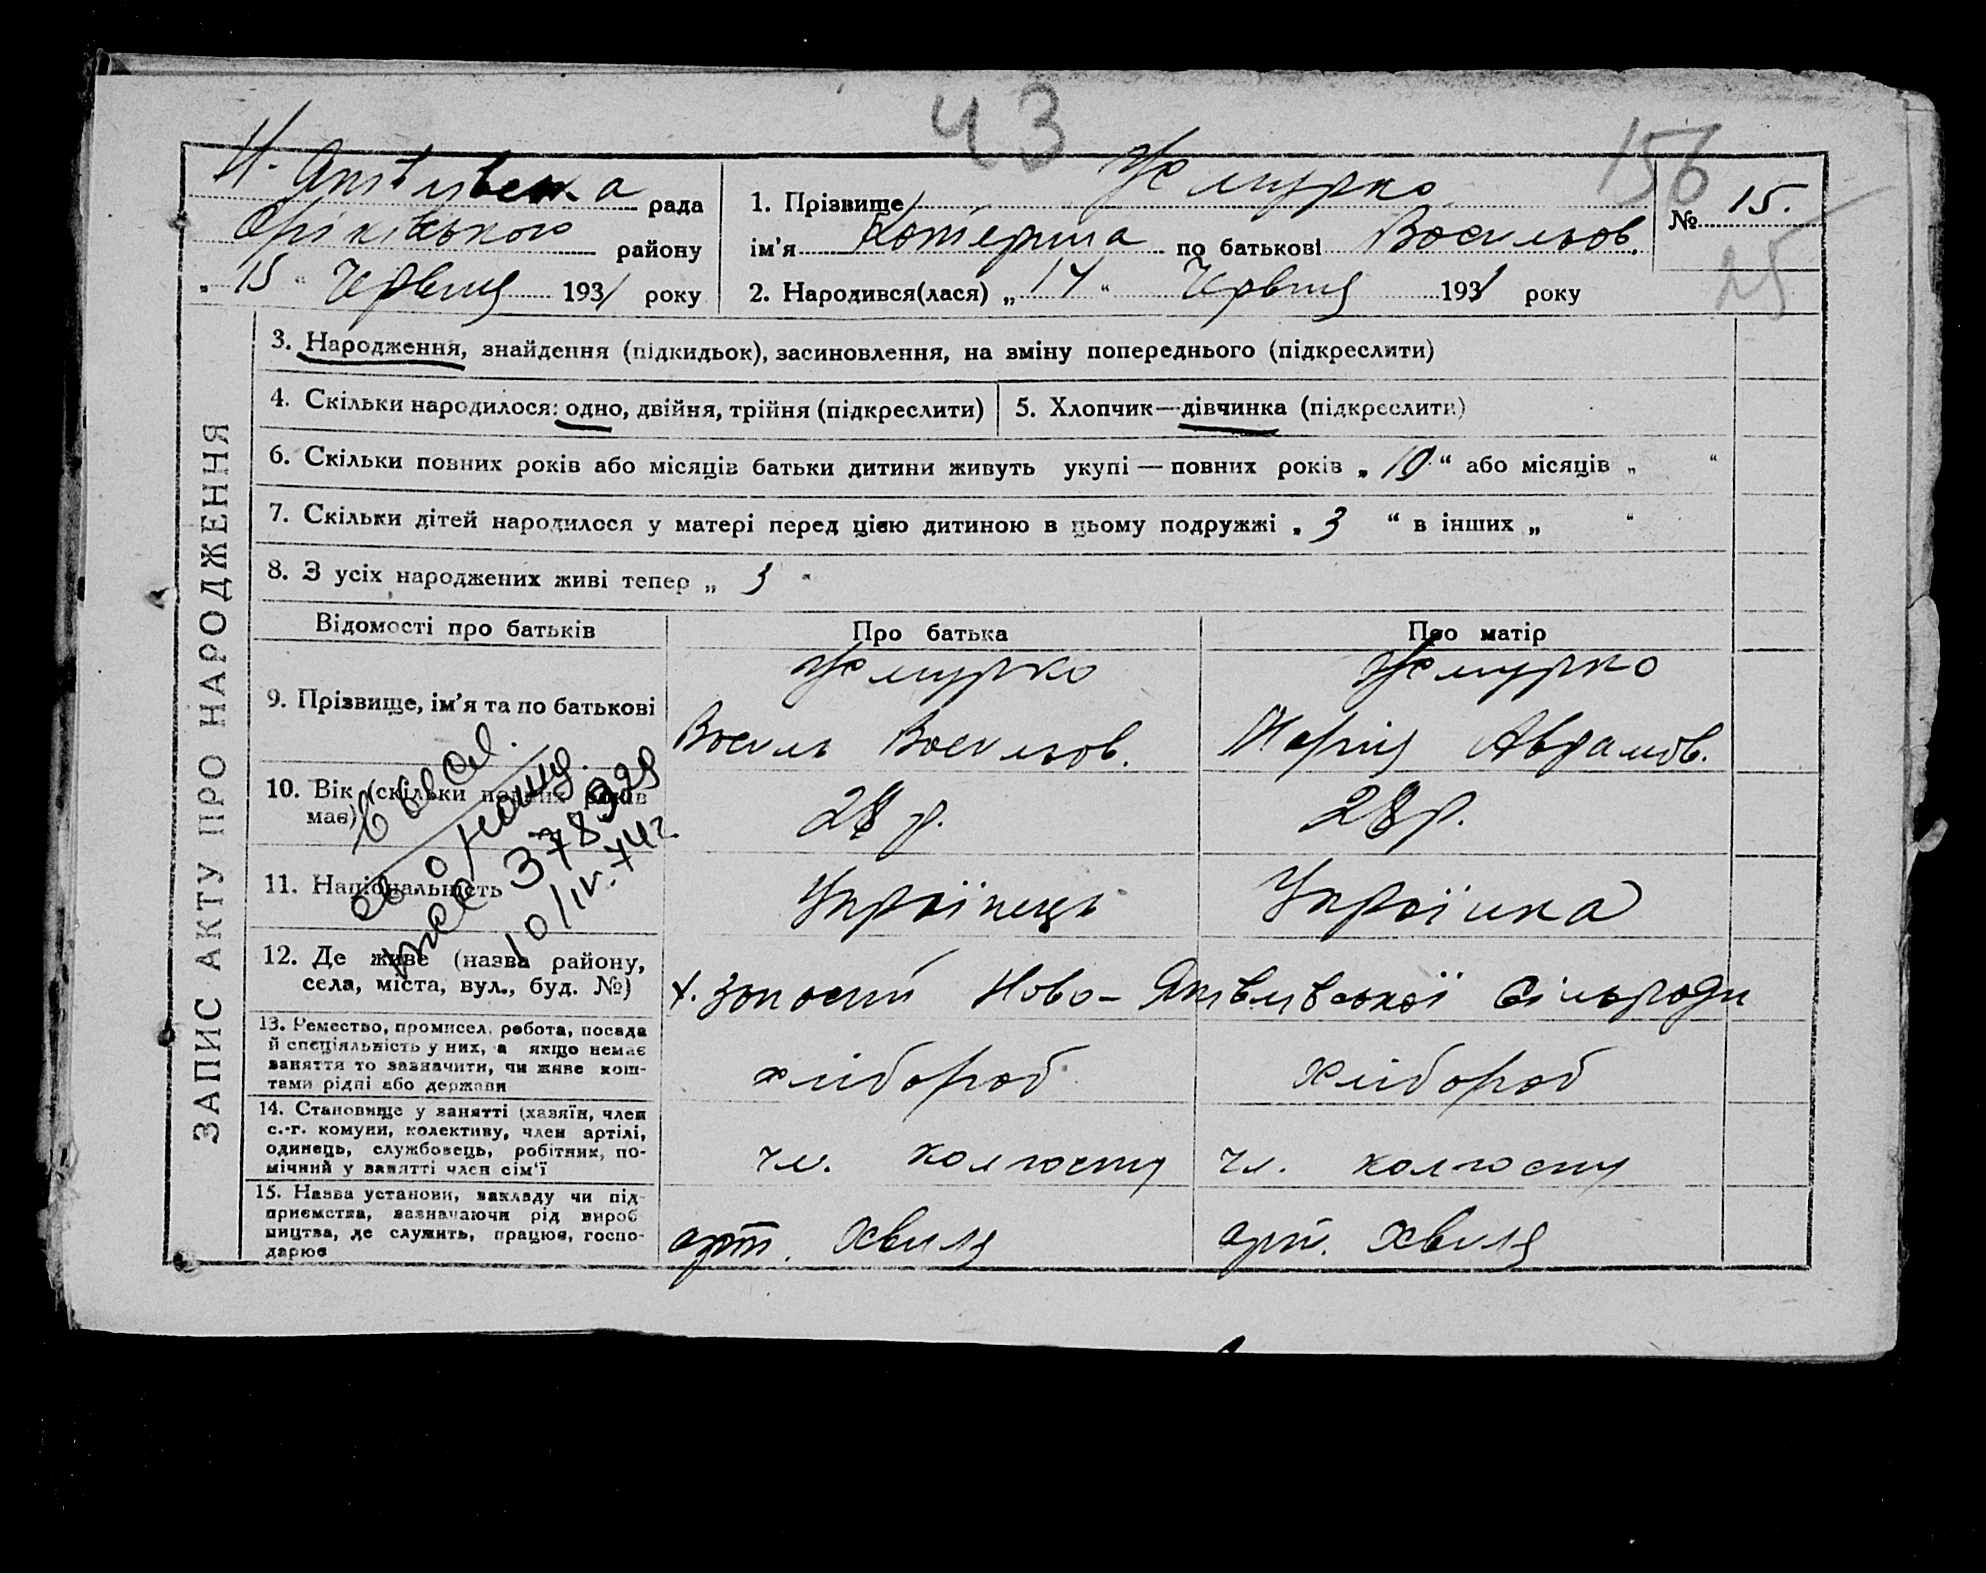 43
156
Н-Яківлівська рада
Оріхівського району
„ 15 “ Червня 1931 року
1. Прізвище Жмурко
ім'я Катерина по батькові Васильов.
2. Народився(лася) „ 14 “ Червня 1931 року
№ 15.
25
ЗАПИС АКТУ ПРО НАРОДЖЕННЯ
3. Народження, знайдення (підкидьок), засиновлення, на зміну попереднього (підкреслити)
4. Скільки народилося: одно, двійня, трійня (підкреслити)
5. Хлопчик—дівчинка (підкреслити)
6. Скільки повних років або місяців батьки дитини живуть укупі — повних років „ 10 “ або місяців „ “
7. Скільки дітей народилося у матері перед цією дитиною в цьому подружжі „ 3 “ в інших „ “
8. З усіх народжених живі тепер „ 3 “
Відомості про батьків
Про батька
Про матір
9. Прізвище, ім'я та по батькові
Жмурко
Василь Васильов.
Жмурко
Марія Аврамов.
10. Вік (скільки повних років
має)
28 р.
28 р.
11. Національність
Українець
Українка
378929
10/IV-74г.
12. Де живе (назва району,
села, міста, вул., буд. №)
х. Запасний Ново-Яківлівської сільради
13. Ремество, промисел, робота, посада
й спеціяльність у них, а якщо немає
заняття то зазначити, чи живе кош-
тами рідні або держави
хлібороб
хлібороб
14. Становище у занятті (хазяїн, член
с.-г. комуни, колективу, член артілі,
одинець, службовець, робітник, по-
мічний у занятті член сім'ї
чл. колгоспу
чл. колгоспу
15. Назва установи, закладу чи під-
приємства, зазначаючи рід вироб
ництва, де служить, працює, госпо-
дарює
арт. Хвиля
арт. Хвиля